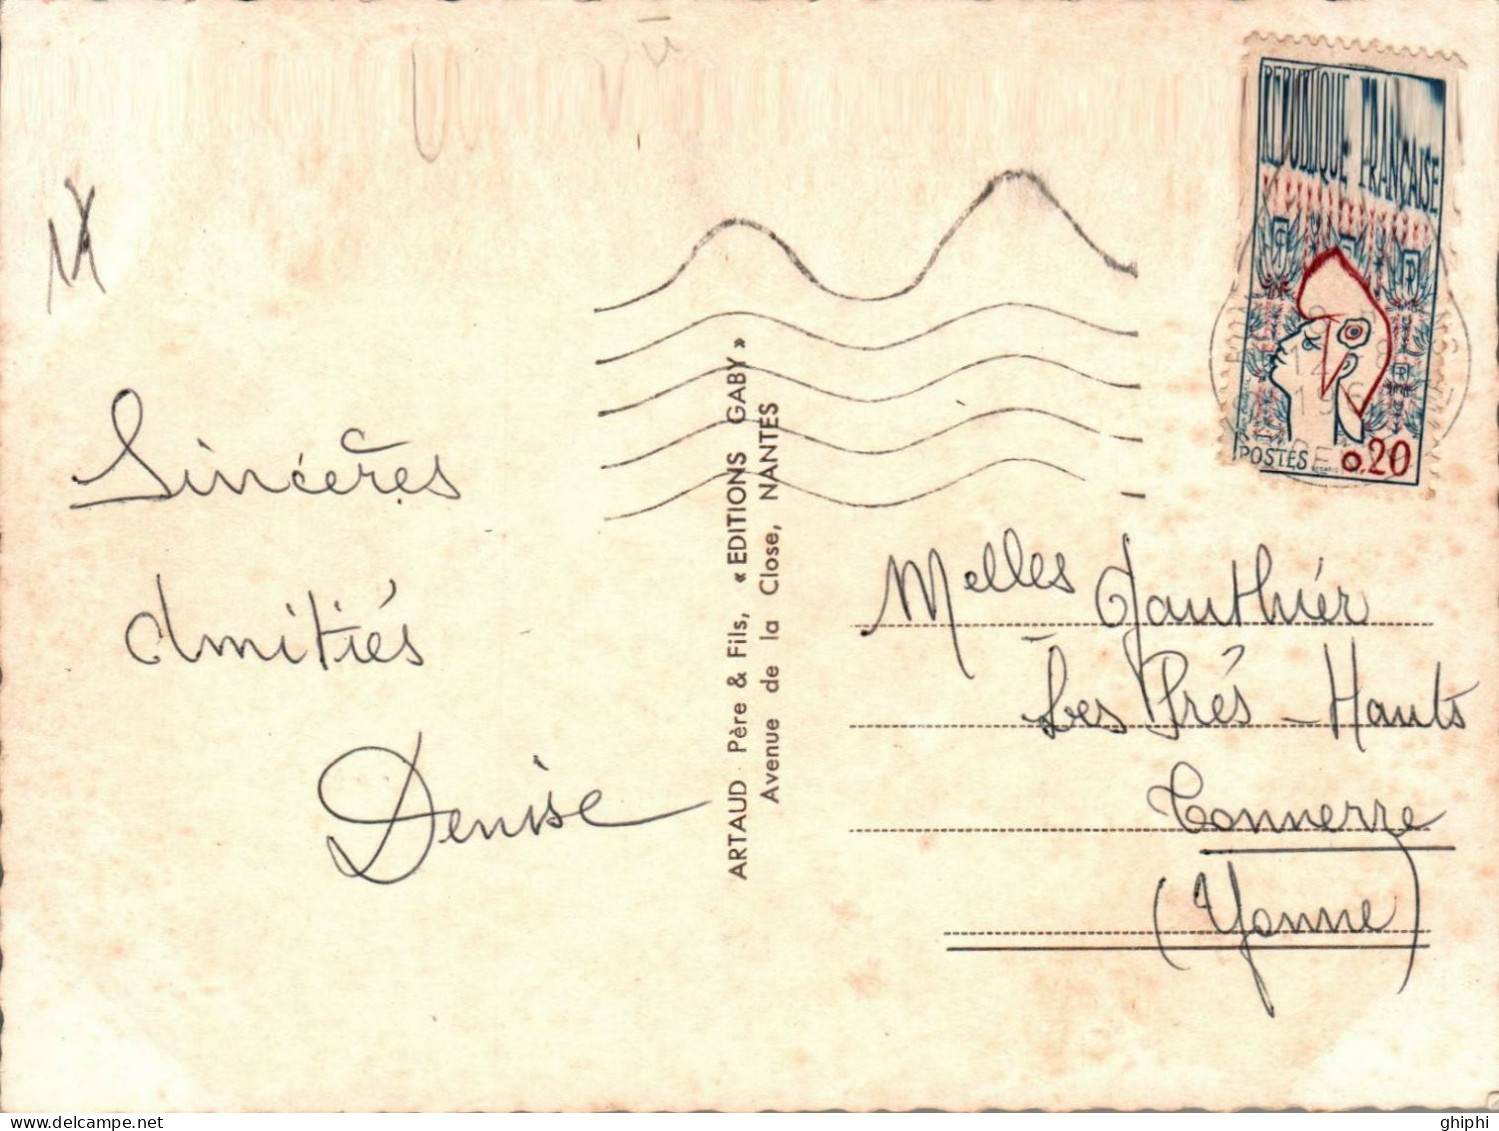 Sincères
Amitiés
Denise
ARTAUD Père & Fils, « EDITIONS GABY »
Avenue de la Close, NANTES
REPUBLIQUE FRANÇAISE
POSTES 0,20
Melles Gauthier
Les Prés-Hauts
Tonnerre
(Yonne)
ghiphi